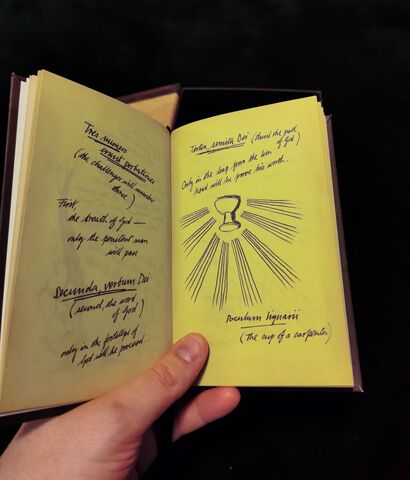 Tres numero
erunt probationes
(the challenges will number
three)
First
the breath of God —
only the penitent man
will pass
Secunda, verbum Dei
(second, the word
of God)
only in the footsteps of
God will he proceed...
Tertia, semita Dei (third the path
of God)
Only in the leap from the lion
head will he prove his worth.
Poculum lignarii
(The cup of a carpenter)